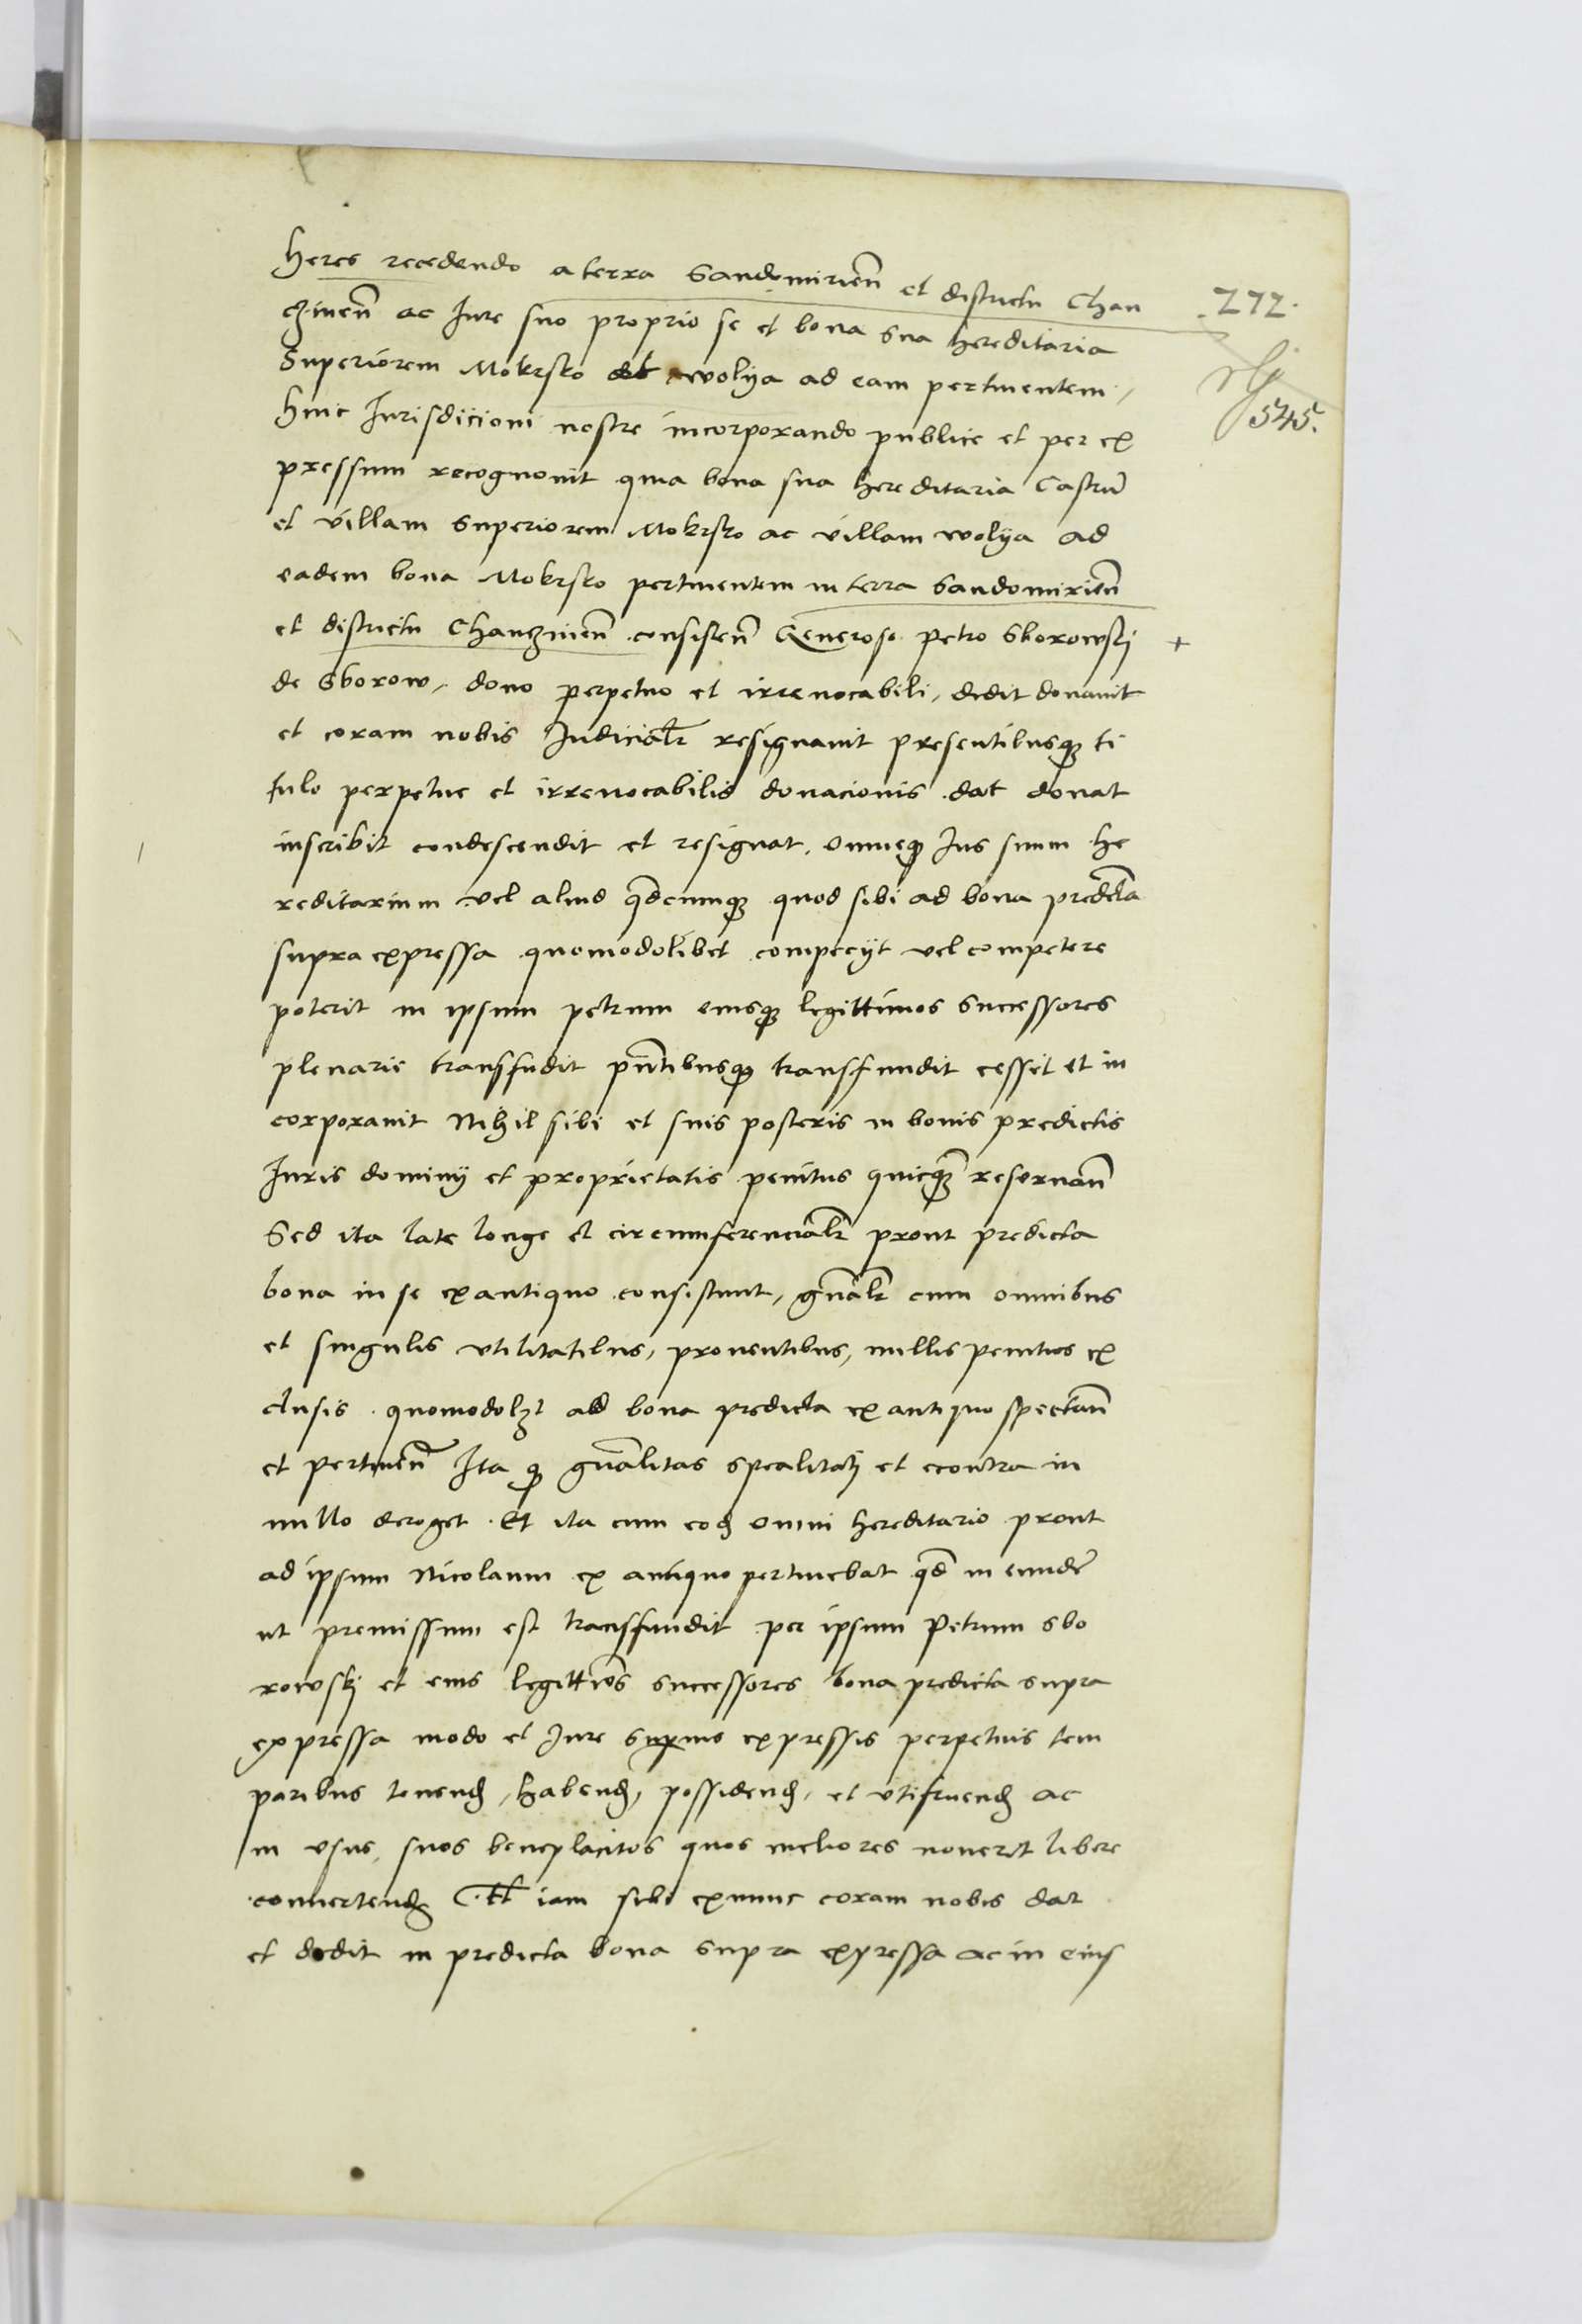 Heres recedendo a terra Sandomirien̄ et districtu Chan
czinen̄ ac Jure suo proprio se et bona sua hereditaria
Superiorem Mokrsko et wolya ad eam pertinentem,
huic Jurisdicioni nostre incorporando publice et per ex
pressum recognouit quia bona sua hereditaria Castrū
et villam Superiorem Mokrsko ac villam wolya ad
eadem bona Mokrsko pertinentem in terra Sandomirien̄
et districtu Chanczinen̄ consisten̄ Generoso Petro Sborowskj
de Sborow, dono perpetuo et irreuocabili, dedit donauit
et coram nobis Judicialr̄ resignauit presentibusqꝫ ti
tulo perpetue et irreuocabilis donacionis dat donat
inscribit condescendit et resignat, omneqꝫ Jus suum he
reditarium vel aliud qd̄cumqꝫ quod sibi ad bona predc̄ta
supra expressa quomodolibet compecijt vel competere
poterit in ipsum petrum eiusqꝫ legittimos successores
plenarie transfudit pn̄tibusqꝫ transfundit cessit et in
corporauit Nihil sibi et suis posteris in bonis predictis
Juris dominij et proprietatis penitus quicqꝫ̄ reseruan̄
Sed ita late longe et circumferencialr̄ prout predicta
bona in se ex antiquo consistunt, gn̄alr̄ cum omnibus
et singulis vtilitatibus, prouentibus, nullis penitus ex
clusis quomodolꝫt ad bona predicta ex antiquo spectan̄
et pertinen̄ Ita qꝫ gn̄alitas spealitatj et econtra in
nullo deroget. Et ita cum eod omni hereditario prout
ad ipsum Nicolaum ex antiquo pertinebat qd̄ in eundē
ut premissum est transfundit per ipsum Petrum sbo
rowskj et eius legittīos successores bona predicta supra
expressa modo et Jure superius expressis perpetuis tem
poribus tenend, habend, possidend, et vtifruend ac
in vsus, suos beneplacitos quos meliores nouerit libere
conuertend Et iam sibi exnunc coram nobis dat
et dedit in predicta bona supra expressa ac in eius
272.
545.
+